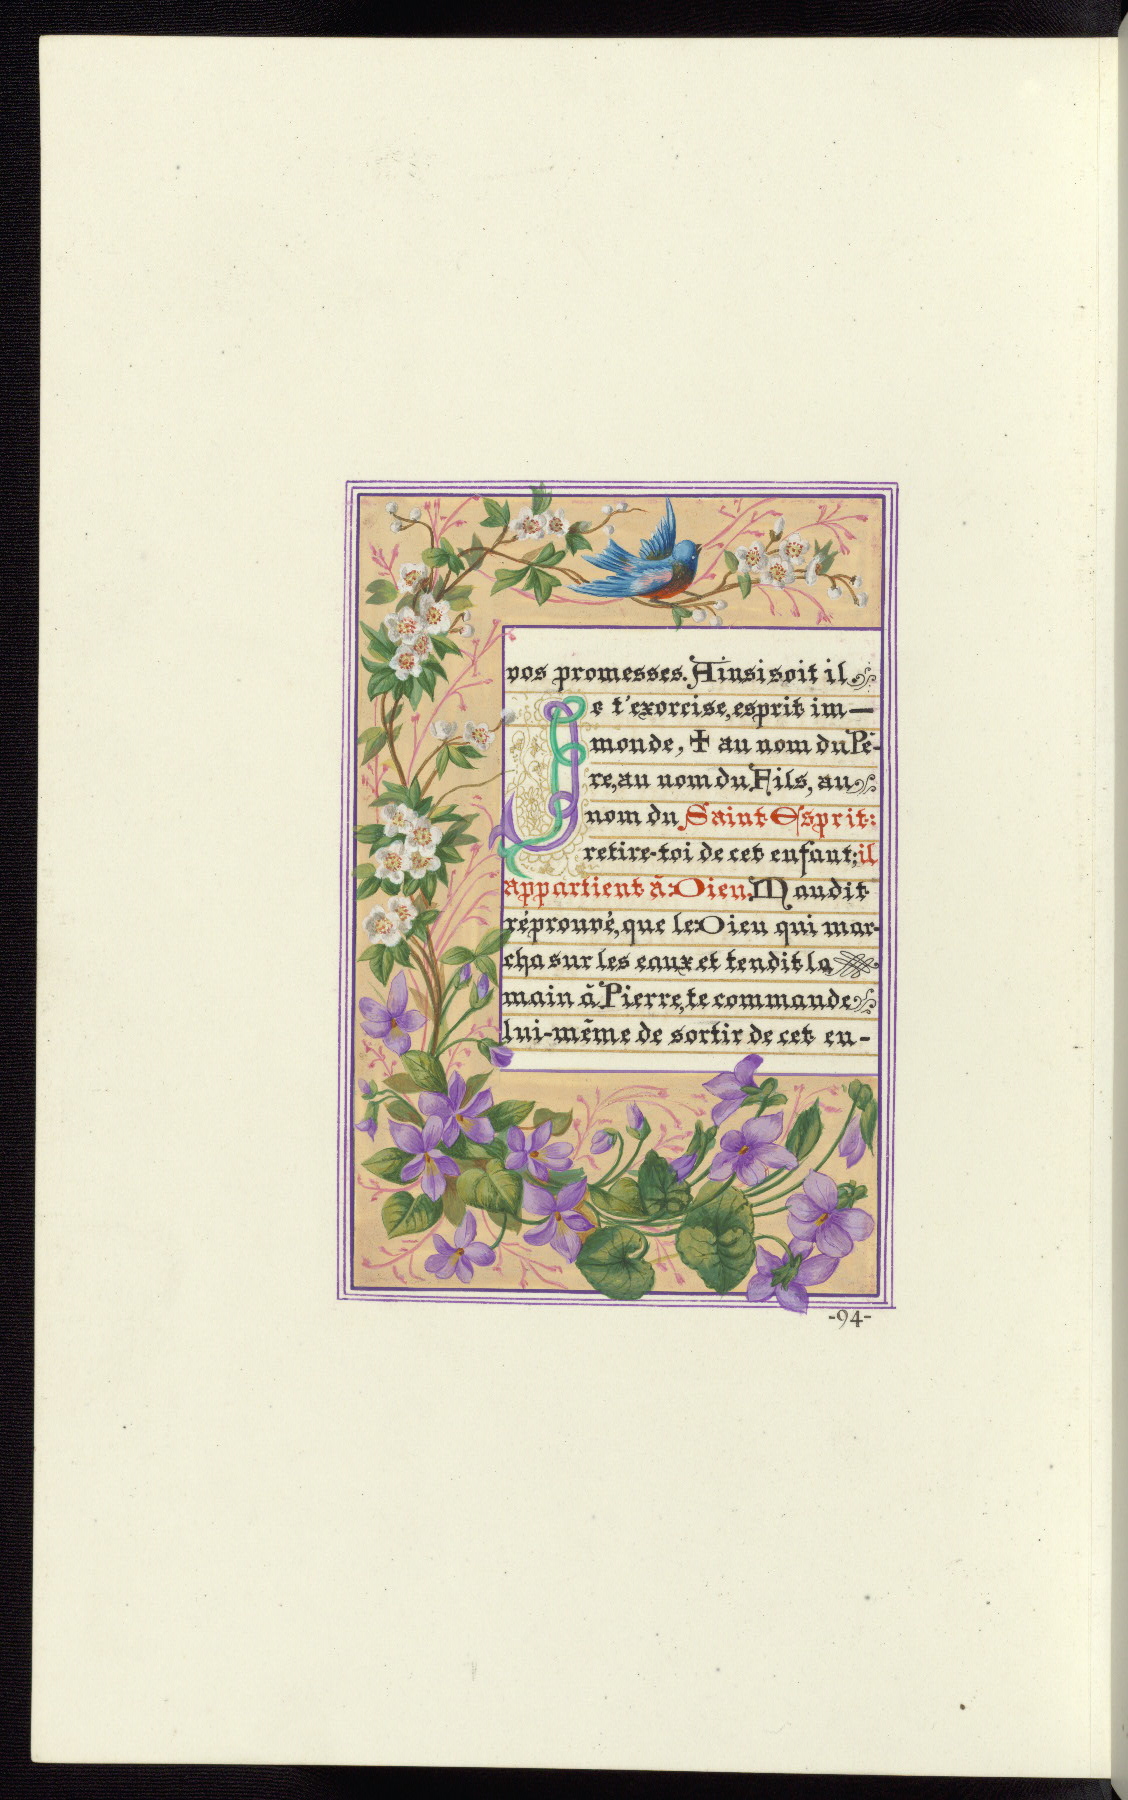 vos promesses. Ainsi soit il
Je t'exorcise, esprit im—
monde, ✝ au nom du Pè-
re, au nom du Fils, au
nom du Saint-Esprit:
retire-toi de cet enfant; il
appartient à Dieu. Maudit
réprouvé, que le Dieu qui mar-
cha sur les eaux et tendit la
main à Pierre, te commande
lui-même de sortir de cet en-
-94-